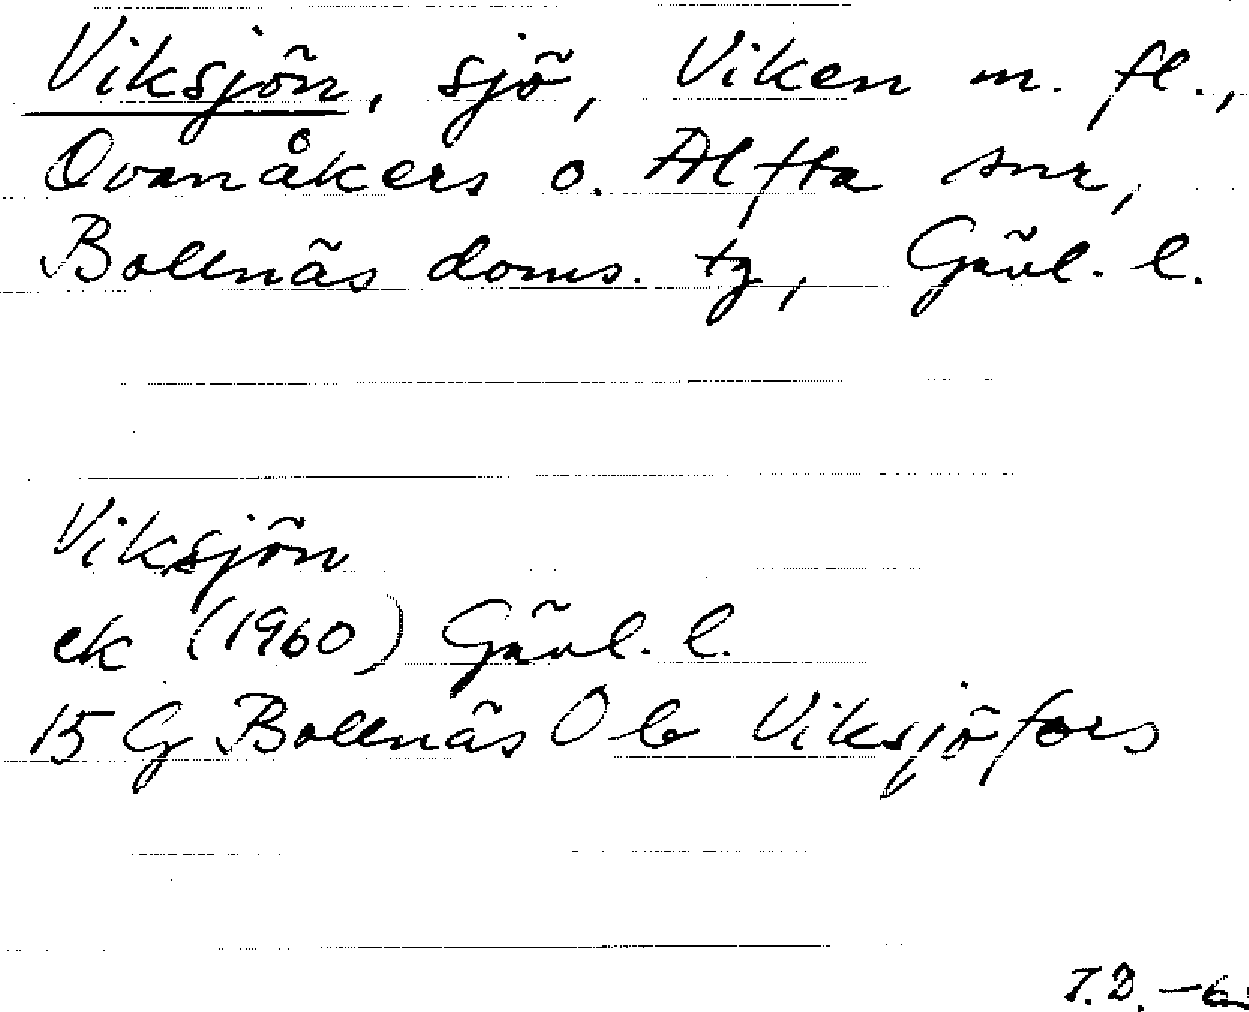 Viksjön, sjö, Viken m. fl.,
Ovanåkers o. Alfta snr,
Bollnäs doms. tg, Gävl. l.
Viksjön
ek (1960) Gävl. l.
15 G Bollnäs 0 b Viksjöfors
T.D.